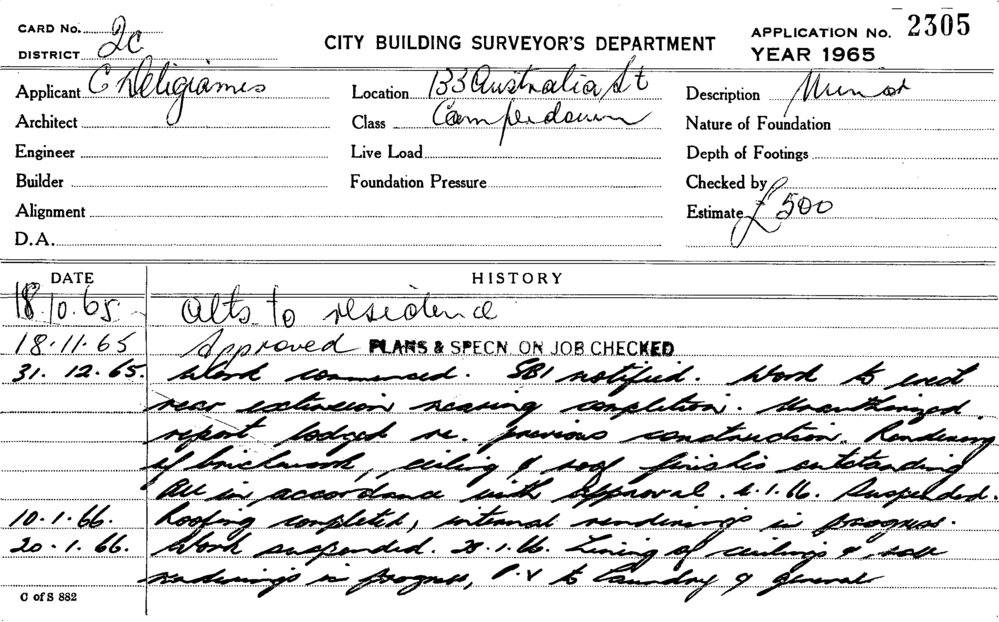 CARD No. 2c
DISTRICT
CITY BUILDING SURVEYOR'S DEPARTMENT
APPLICATION No. 2305
YEAR 1965
Applicant C Deligiannis
Location 133 Australia St
Description Minor
Architect
Class Camperdown
Nature of Foundation
Engineer
Live Load
Depth of Footings
Builder
Foundation Pressure
Checked by
Alignment
Estimate £500
D.A.
DATE
HISTORY
18.10.65 Alts to residence
18.11.65 Approved PLANS & SPECN. ON JOB CHECKED
31.12.65. Work commenced. SBI notified. Work to erect
rear extension nearing completion. Unauthorized
report lodged re. previous construction. Rendering
of brickwork, ceiling & roof finishes outstanding
All in accordance with approval. 4.1.66. Suspended.
10.1.66. Roofing completed, internal renderings in progress.
20.1.66. Work suspended. 28.1.66. Lining of ceilings &
renderings in progress, P.V to laundry & general
C of S 882